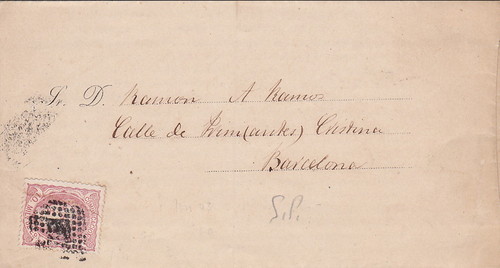 Sr. D. Ramon A Ramos
Calle de Prim (antes) Cristina
Barcelona
S.P.